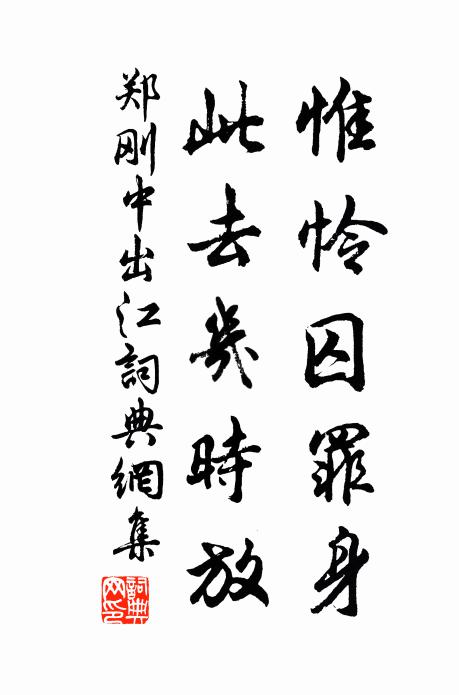 惟怜囚罪身
此去幾時放
郑刚中出江詞典網集
詞典网印